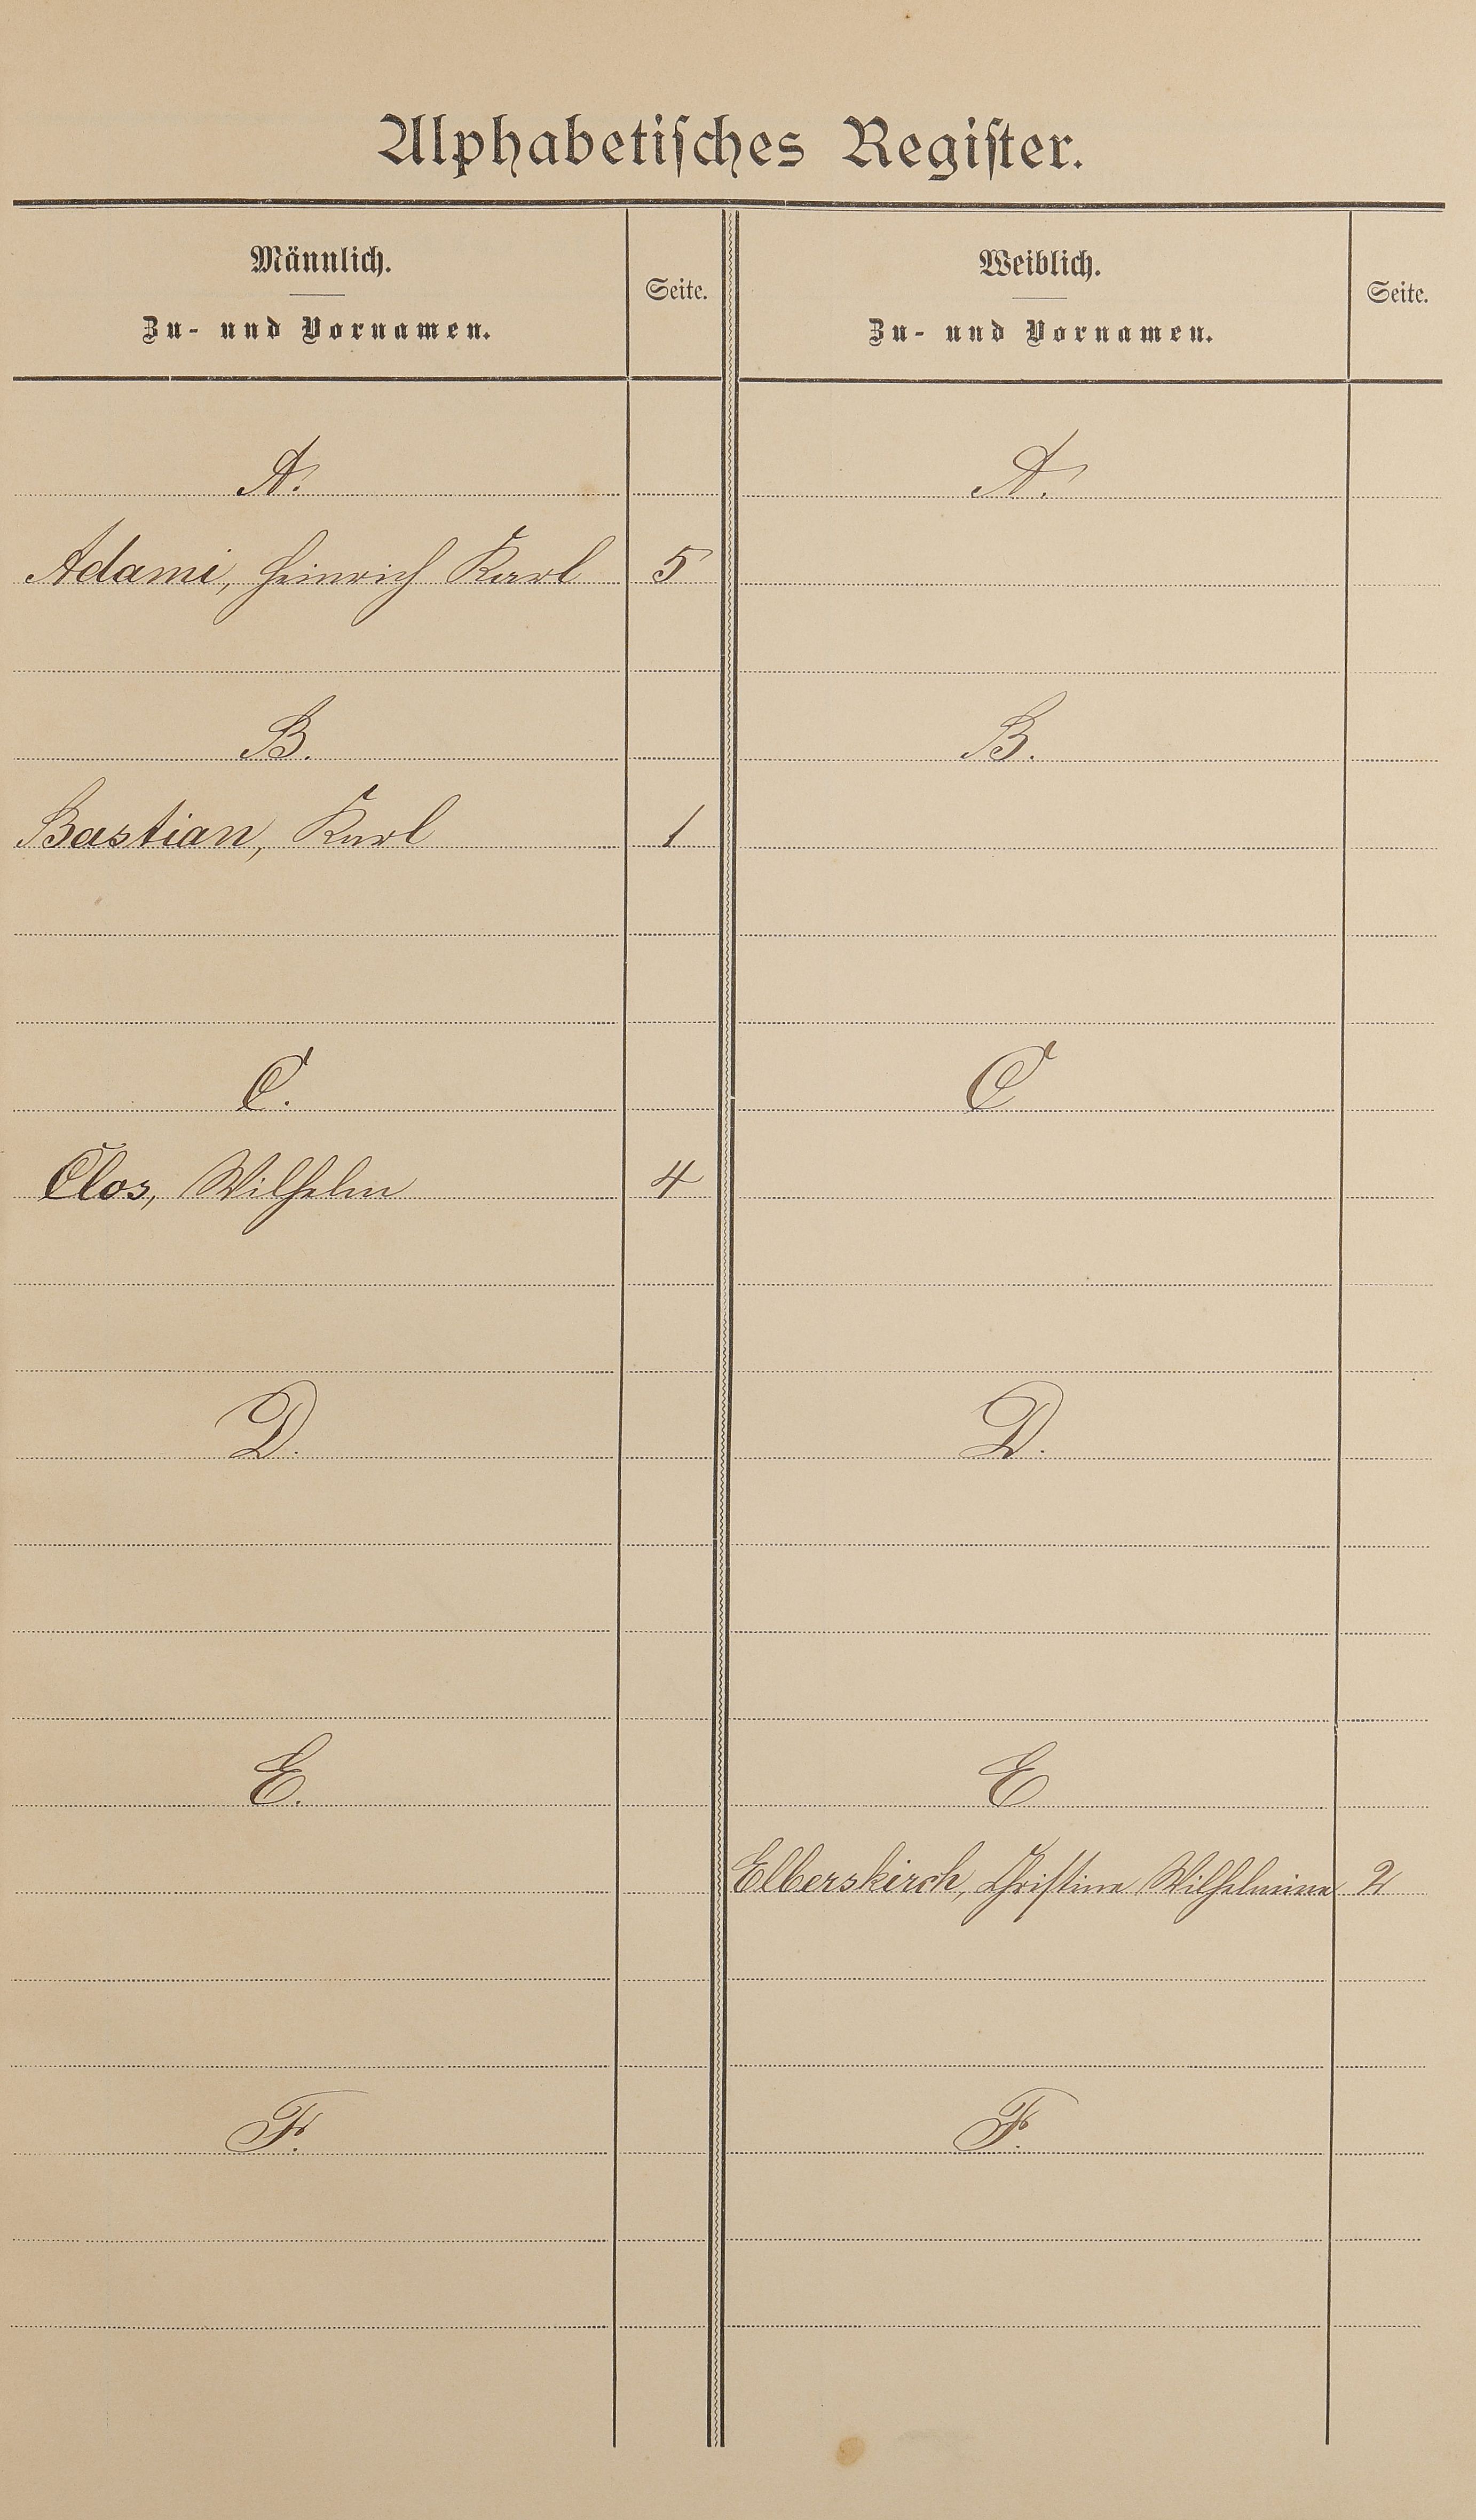 Alphabetisches Register.
Männlich.
Zu- und Vornamen.
Seite.
Weiblich.
Zu- und Vornamen.
Seite.
A. A.
Adami, Heinrich Karl 5
B. B.
Bastian, Karl 1
C. C
Clos, Wilhelm 4
D. D.
E. E
Elberskirch, Christina Wilhelmina 2
F. F.